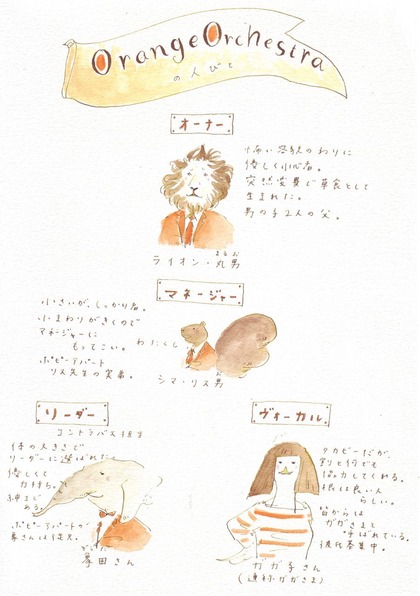 Orange Orchestra
の人びと
オーナー
怖い容貌のわりに
優しく小心者。
突然変異で草食として
生まれた。
男の子2人の父。
ライオン・丸男
まるお
マネージャー
小さいが、しっかり者。
小まわりがきくので
マネージャーに
もってこい。
ポピーアパート
リス先生の実弟。
わたくし
シマ・リス男
お
リーダー
コントラバス担当
体の大きさで
リーダーに選ばれた
優しくて
力持ち。
紳士で
ある。
ポピーアパートの
象さんは
象田さん
ヴォーカル
タカビーだが、
割と何でも
協力してくれる。
根は良い人
らしい。
皆からは
ガガさまと
呼ばれている。
彼氏募集中。
ガガ子さん
(通称・ガガさま)